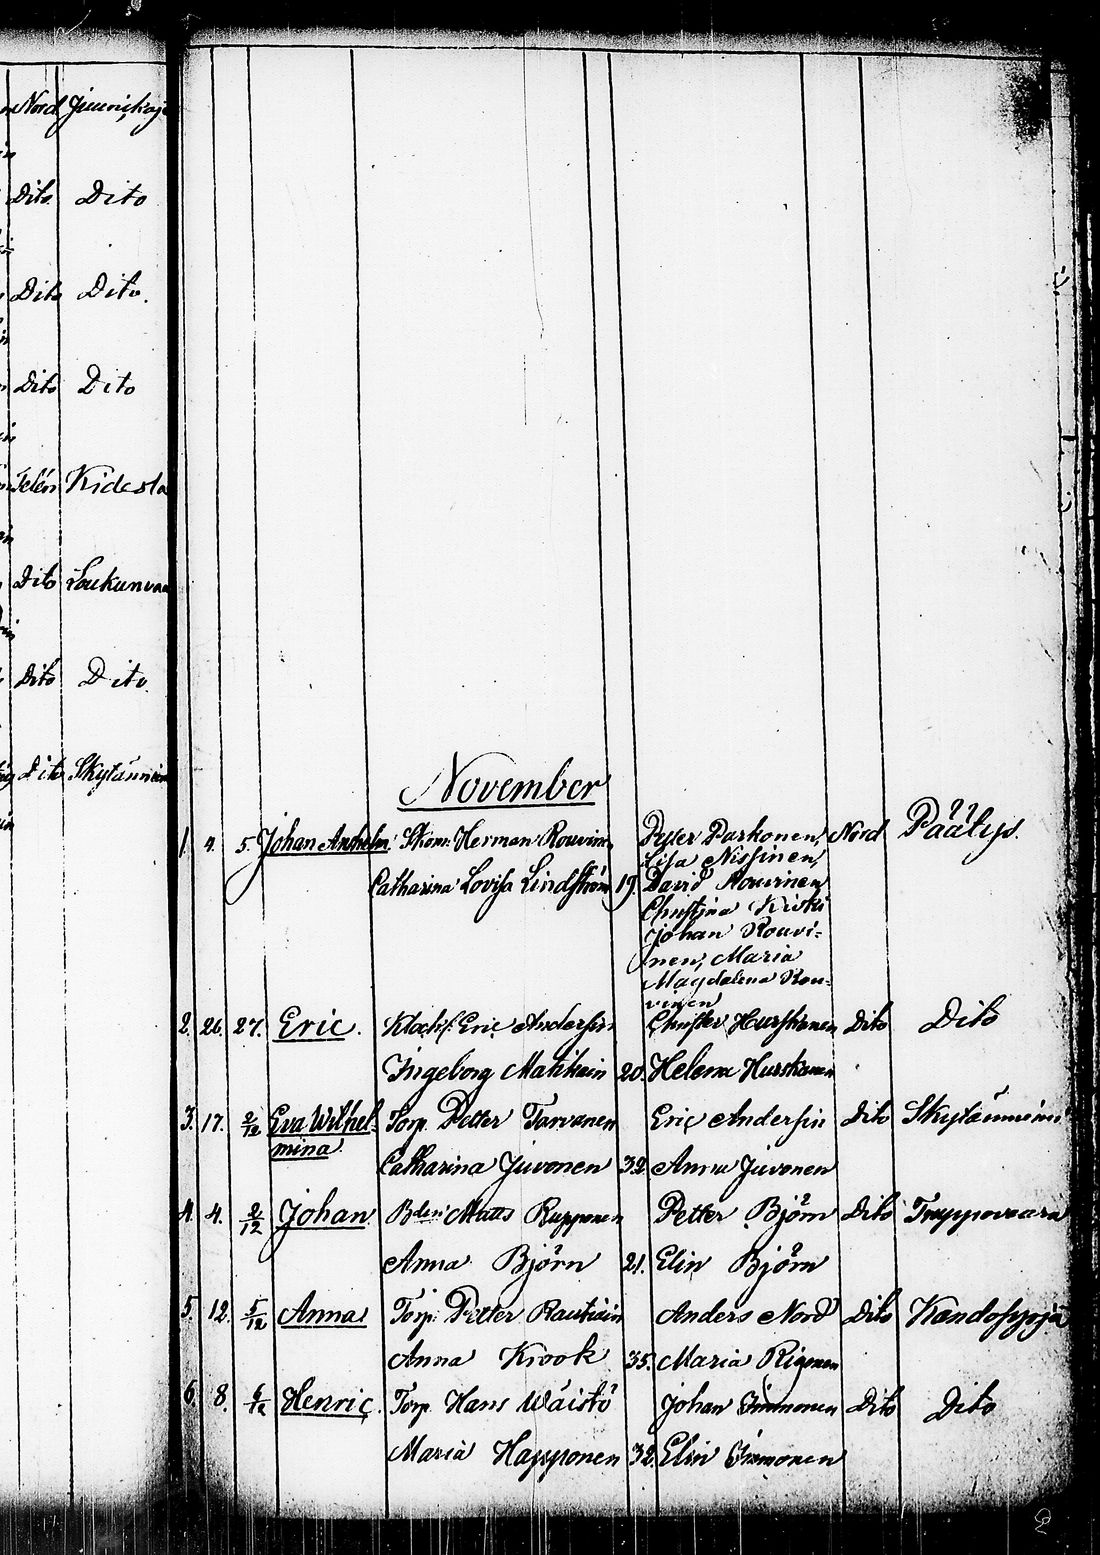 Nord
Dito Dito
Dito Dito.
Dito Dito
Telén Kidesla
Dito Loukunvaa
Dito Dito.
Dito Skytänniem
November
1. 4. 5. Johan Anshelm Skom. Herman Rouvin Petter Parkonen, Nord Päälys.
Lisa Nissinen,
Catharina Lovisa Lindström 19. David Rouvinen
Christina Kiiski
Johan Rouvi-
nen, Maria
Magdalena Rou-
vinen
2. 26. 27. Eric. Eric Andersin Christer Hurskainen Dito Dito
Ingeborg Matikain 20. Helena Hurskainen
3. 17. 2/12 Eva Wilhel- Torp. Petter Tarvanen Eric Andersin Dito Skytänniemi
mina.
Catharina Juvonen 32. Anna Juvonen
4. 4. 2/12 Johan Bden Matts Rupponen Petter Björn Dito Truppovaara
Anna Björn 21. Elin Björn
5. 12. 5/12 Anna Torp. Petter Rautiain Anders Nord Dito
Anna Krook 35. Maria
6. 8. 6/12 Henric. Torp. Hans Wäistö Johan Dito Dito
Maria Happonen 32. Elin